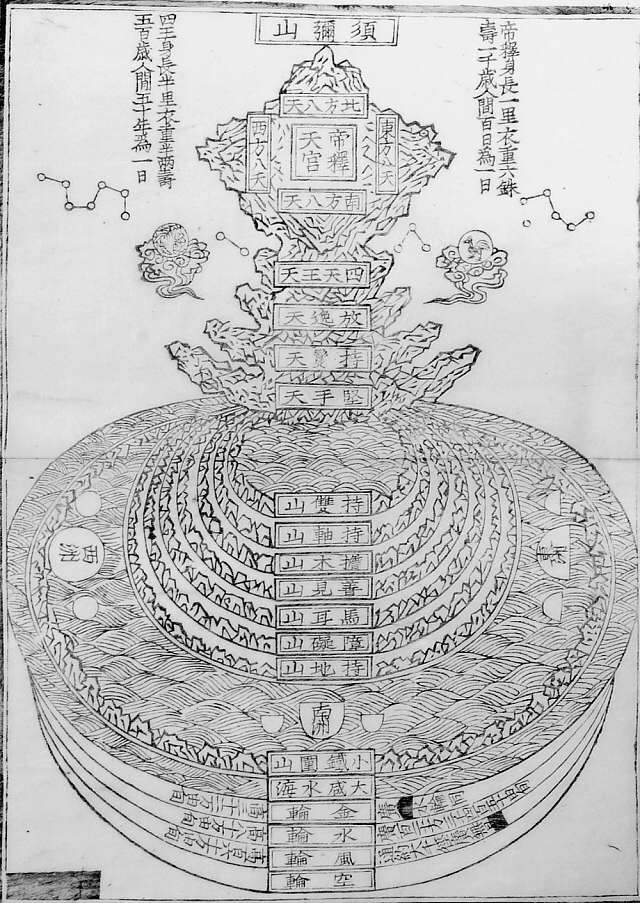 須彌山
帝釋身長一里衣重六銖
壽一千歳人間百為一日
四王身長半里衣重半兩壽
五百歳人間五十年為一日
北方八天
東方八天
帝釋
天宮
西方八天
南方八天
四天王天
放逸天
持鬘天
堅手天
持雙山
持軸山
擔木山
善見山
馬耳山
障礙山
持地山
西洲
南洲
小鐵圍山
大咸水海
金輪
水輪
風輪
空輪